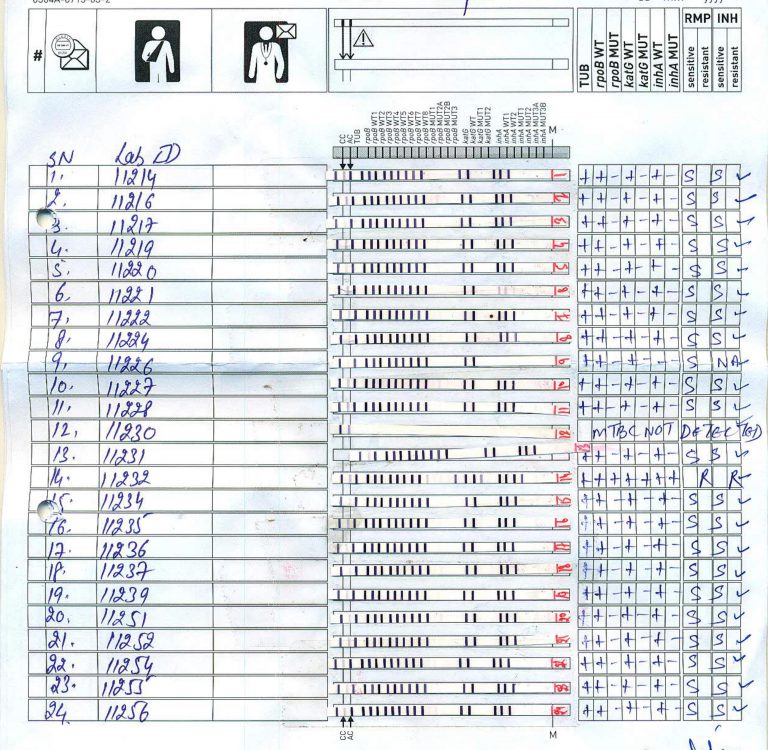 #
TUB
rpoB WT
rpoB MUT
katG WT
katG MUT
inhA WT
inhA MUT
RMP INH
sensitive
resistant
sensitive
resistant
CC
AC
TUB
rpoB
rpoB WT1
rpoB WT2
rpoB WT3
rpoB WT4
rpoB WT5
rpoB WT6
rpoB WT7
rpoB WT8
rpoB MUT1
rpoB MUT2A
rpoB MUT2B
rpoB MUT3
katG
katG WT
katG MUT1
katG MUT2
inhA
inhA WT1
inhA WT2
inhA MUT1
inhA MUT2
inhA MUT3A
inhA MUT3B
M
SN Lab ID
1. 11214 1 + + - + - + - S S ✓
2. 11216 2 + + - + - + - S S ✓
3. 11217 3 + + - + - + - S S ✓
4. 11219 4 + + - + - + - S S ✓
5. 11220 5 + + - + - + - S S ✓
6. 11221 6 + + - + - + - S S ✓
7. 11222 7 + + - + - + - S S ✓
8. 11224 8 + + - + - + - S S ✓
9. 11226 9 + + - + - - - S NA
10. 11227 10 + + - + - + - S S ✓
11. 11228 11 + + - + - + - S S ✓
12. 11230 12 MTBC NOT DETECTED
13. 11231 13 + + - + - + - S S ✓
14. 11232 14 + + + + + + + R R ✓
15. 11234 15 + + - + - + - S S ✓
16. 11235 16 + + - + - + - S S ✓
17. 11236 17 + + - + - + - S S ✓
18. 11237 18 + + - + - + - S S ✓
19. 11239 19 + + - + - + - S S ✓
20. 11251 20 + + - + - + - S S ✓
21. 11252 21 + + - + - + - S S ✓
22. 11254 22 + + - + - + - S S ✓
23. 11255 23 + + - + - + - S S ✓
24. 11256 24 + + - + - + - S S ✓
CC
AC
M